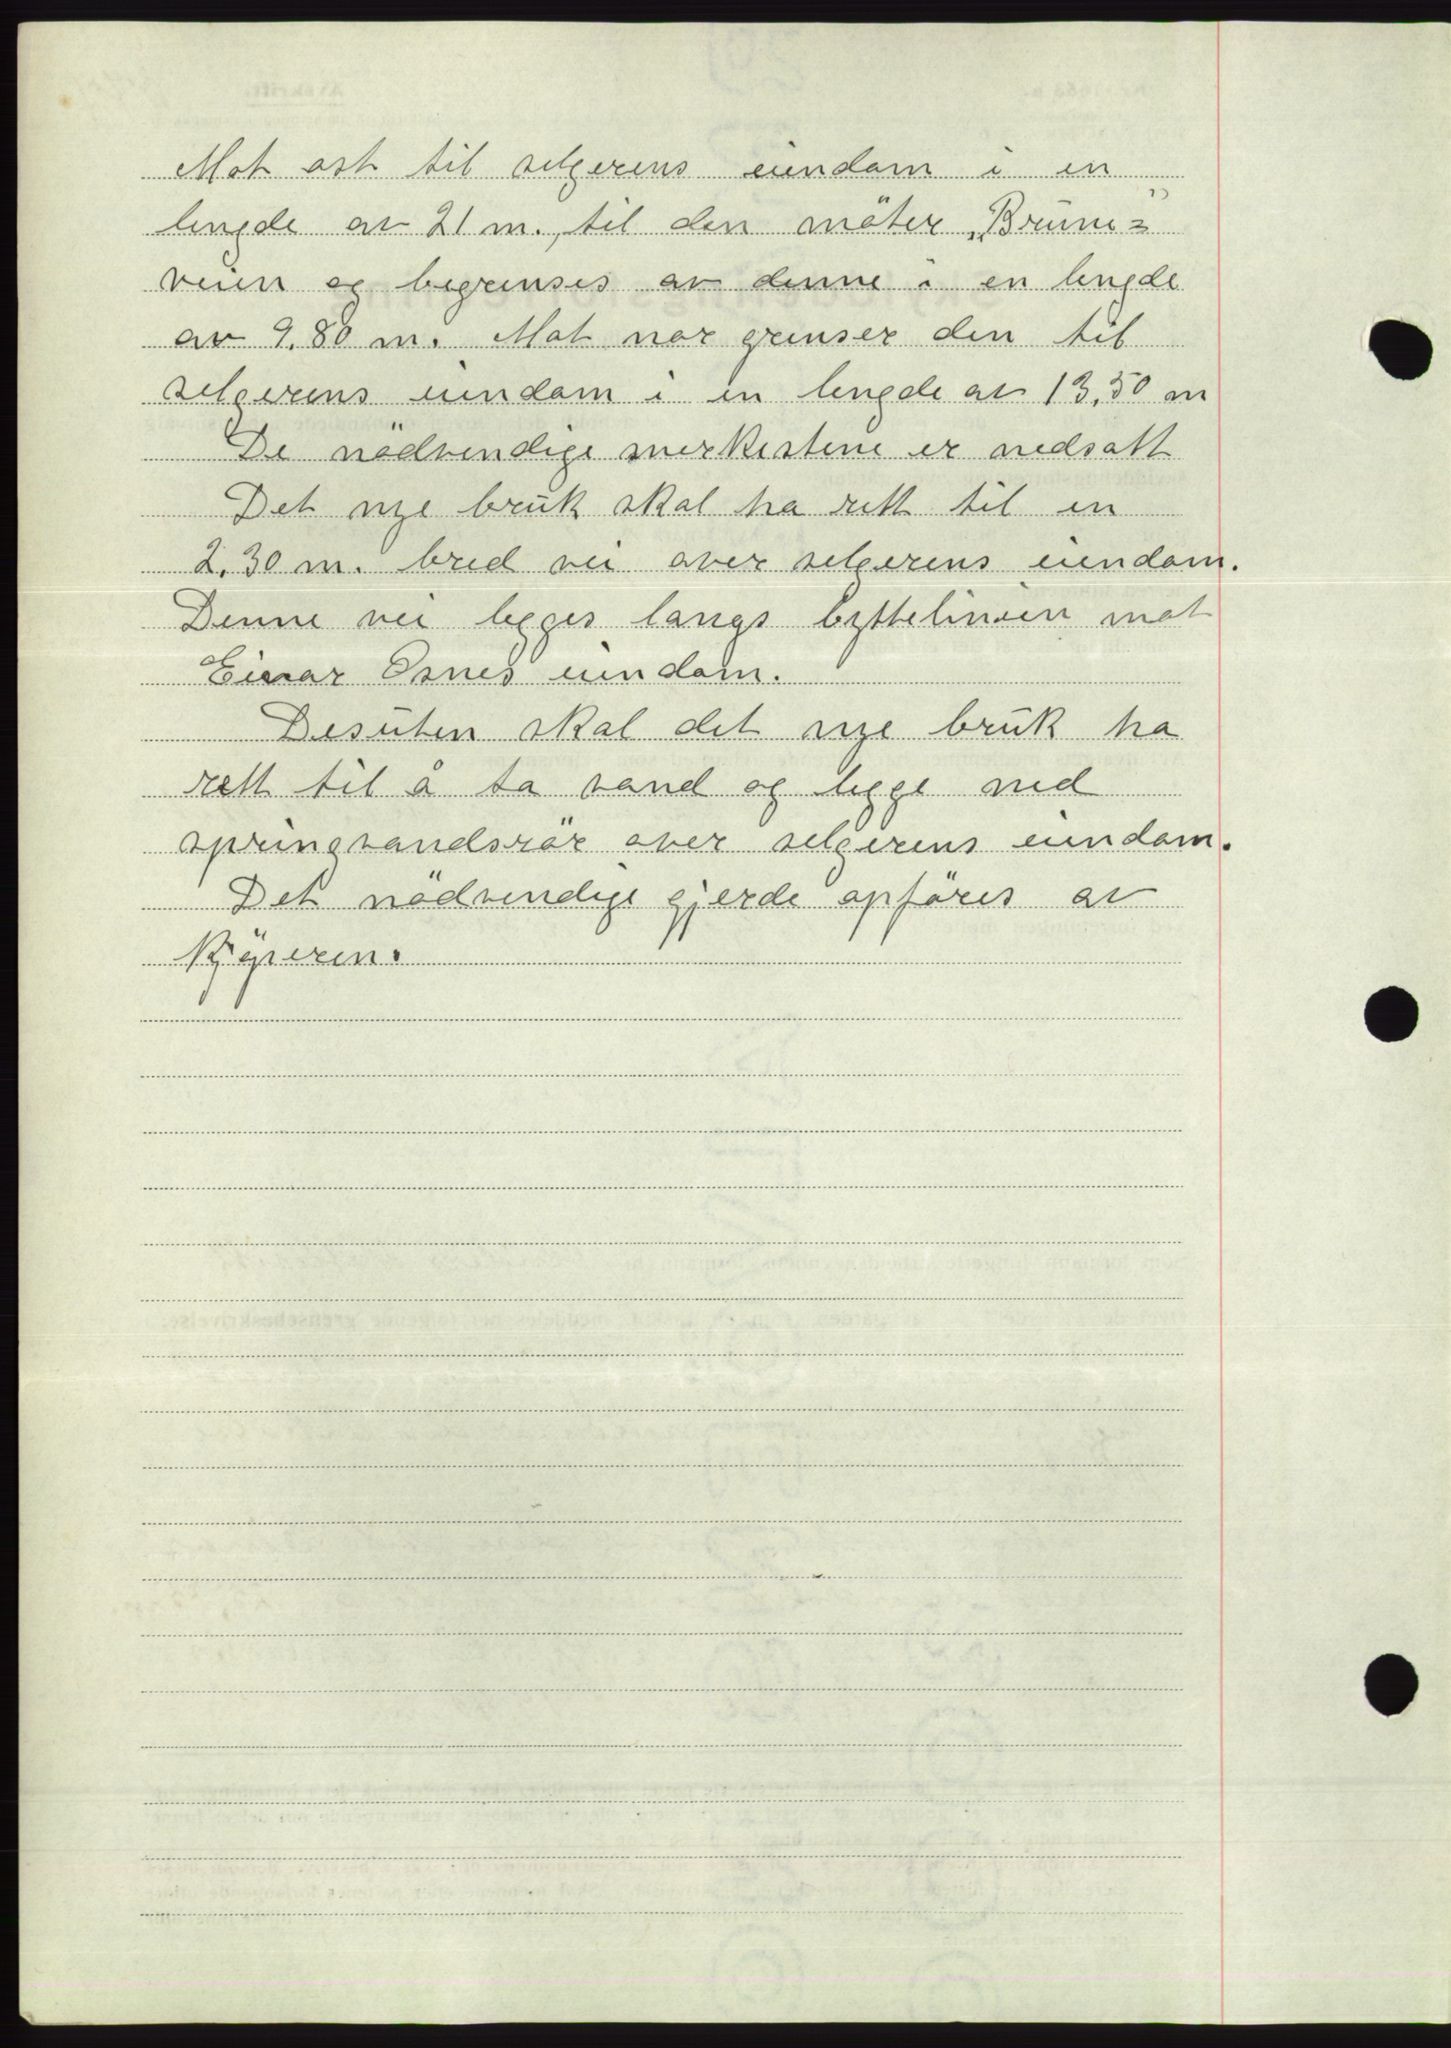 Mot ost til selgerens eiendom i en
lengde av 21 m., til den möter „Brune="
veien og begrenses av denne i en lengde
av 9.80 m. Mot nor grenser den til
selgerens eiendom i en lengde av 13,50 m
De nödvendige merkestene er nedsatt
Det nye bruk skal ha rett til en
2.30 m. bred vei over selgerens eiendom.
Denne vei legges langs byttelinien mot
Einar Osnes eiendom.
Desuten skal det nye bruk ha
rett til å ta vand og legge ned
springvandsrör over selgerens eiendom.
Det nödvendige gjerde opföres av
kjöperen.